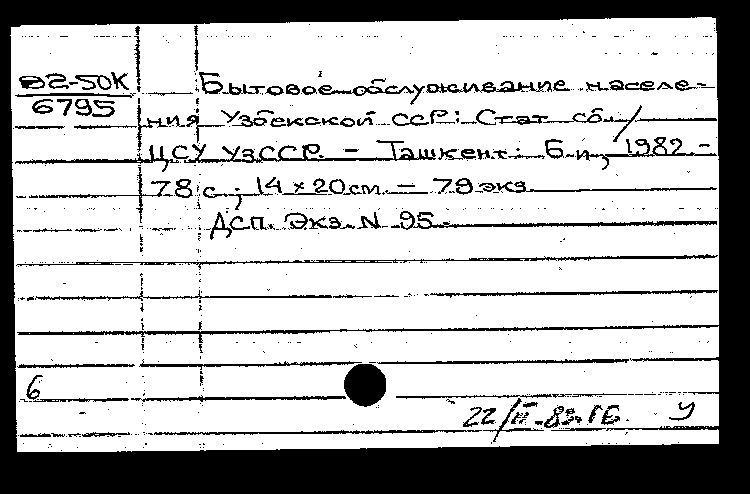 82-50К
6795
Бытовое обслуживание населе-
ния Узбекской ССР: Стат сб. /
ЦСУ УзССР. - Ташкент: Б.и, 1982.-
78 с.; 14 x 20 см. - 79 экз.
ДСП. Экз. N 95.
6
22/II-83. ГБ. У